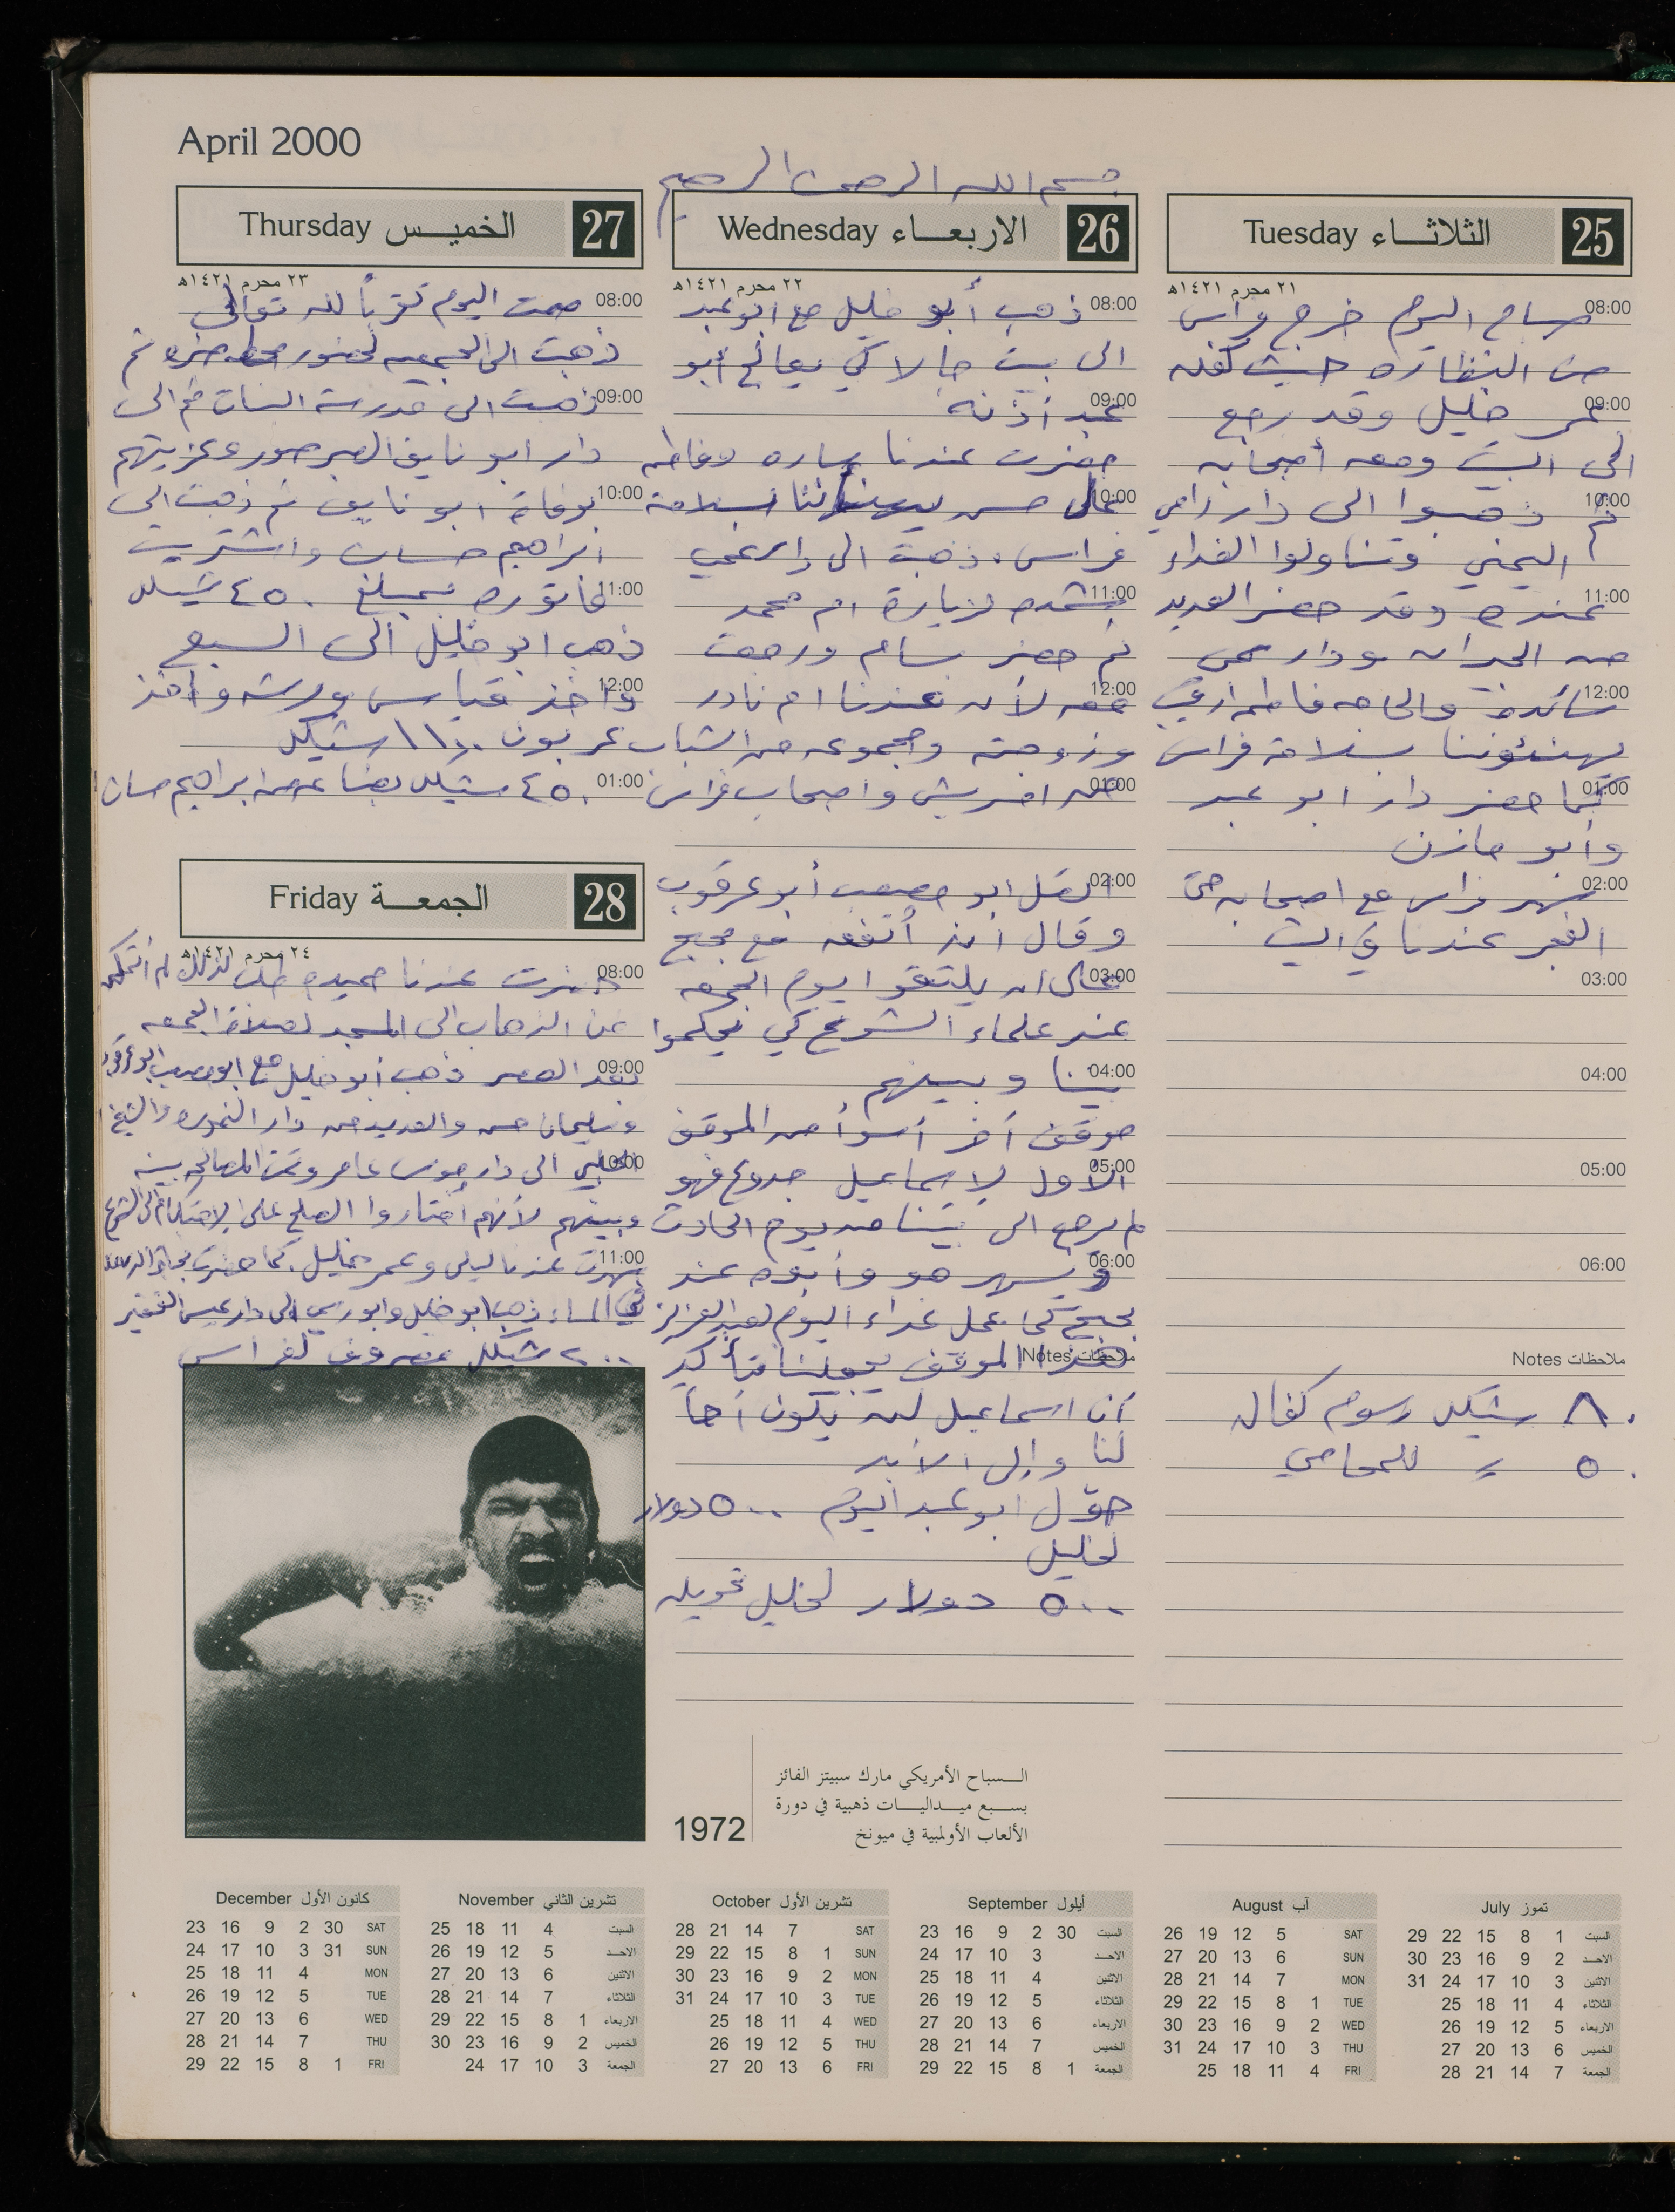 April 2000
بسم الله الرحمن الرحيم
25 الثلاثاء Tuesday
٢١ محرم ١٤٢١هـ
08:00 مساء اليوم خرج فراس
من النظارة حيث كفله
09:00 عمر خليل وقد رجع
الى البيت ومعه أصحابه
10:00 ثم ذهبوا الى دار رامي
اليمني وتناولوا الغداء
11:00 عنده وقد حضر العديد
من الجيران ودار عمي
12:00 والحاجه فاطمه
يهنئوننا بسلامة فراس
01:00 كما حضر دار ابو عبد
وأبو مازن
02:00 سهر فراس مع اصحابه حتى
الفجر عندنا في البيت
03:00
04:00
05:00
06:00
ملاحظات Notes
٨٠ شيكل رسوم كفاله
٥٠ = للمحامي
26 الاربعاء Wednesday
٢٢ محرم ١٤٢١هـ
08:00 ذهب أبو خليل مع ابو عبد
الى بيت جالا كي يعالج أبو
09:00 عبد أذنه
حضرت عندنا ساره وفاطمه
10:00 علي حسن يهنئاننا بسلامة
فراس، ذهبت الى دار عمي
11:00 لزيارة ام محمد
ثم حضر بسام ورجعت
12:00 معه لأنه عندنا ام نادر
وزوجته ومجموعه من الشباب
01:00 واصحاب فراس
02:00 اتصل ابو مصعب أبو عرقوب
وقال انه أتفق مع بحبح
03:00 على ان يلتقوا يوم الجمعه
عند علماء الشرع كي يحكموا
04:00 بيننا وبينهم
موقف آخر أسوأ من الموقف
05:00 الأول لإسماعيل جدوع فهو
لم يرجع الى بيتنا منذ يوم الحادث
06:00 ويسهر هو وأبوه عند
بحبح كما عمل غداء اليوم لعبد العزيز
ملاحظات Notes
هذا الموقف يجعلنا نتأكد
أن اسماعيل لن يكون أخاً
لنا وإلى الأبد
حوّل ابو عبد اليوم ٥٠٠ دولار
لخليل
٥٠٠ دولار لخليل تحويله
27 الخميس Thursday
٢٣ محرم ١٤٢١هـ
08:00 صمت اليوم تقرباً لله تعالى
ذهبت الى الجمعيه لحضور محاضره ثم
09:00 ذهبت الى مدرسة البنات ثم الى
دار ابو نايف وعزيتهم
10:00 بوفاة ابو نايف ثم ذهبت الى
ابراهيم حسان واشتريت
11:00 فاتوره بمبلغ ٤٥٠ شيكل
ذهب ابو خليل الى السبع
12:00 واخذ قياس ورشه وأخذ
عربون ١١٠٠ شيكل
01:00 ٤٥٠ شيكل بضاعه من ابراهيم حسان
28 الجمعة Friday
٢٤ محرم ١٤٢١هـ
08:00 حضرت عندنا حميده لذلك لم أتمكن
من الذهاب الى المسجد لصلاة الجمعه
09:00 بعد العصر ذهب أبو خليل مع ابو مصعب ابو عرقوب
وسليمان حسن والعديد من دار النموره والشيخ
10:00 الى دار يونس عامر وتمت المصالحه بينه
وبينهم لأنهم أختاروا الصلح على الإحتكام الى الشرع
11:00 سهرت عندنا ليلى وعمر خليل. كما حضرت
في المساء ذهب ابو خليل وابو رسمي الى دار عيسى الفقير
٢٠٠ شيكل مصروف لفراس
1972
السباح الأمريكي مارك سبيتز الفائز
بسبع ميداليات ذهبية في دورة
الألعاب الأولمبية في ميونخ
تموز July
السبت 1 8 15 22 29
الاحد 2 9 16 23 30
الاثنين 3 10 17 24 31
الثلاثاء 4 11 18 25
الاربعاء 5 12 19 26
الخميس 6 13 20 27
الجمعة 7 14 21 28
آب August
SAT 5 12 19 26
SUN 6 13 20 27
MON 7 14 21 28
TUE 1 8 15 22 29
WED 2 9 16 23 30
THU 3 10 17 24 31
FRI 4 11 18 25
أيلول September
السبت 30 2 9 16 23
الاحد 3 10 17 24
الاثنين 4 11 18 25
الثلاثاء 5 12 19 26
الاربعاء 6 13 20 27
الخميس 7 14 21 28
الجمعة 1 8 15 22 29
تشرين الأول October
SAT 7 14 21 28
SUN 1 8 15 22 29
MON 2 9 16 23 30
TUE 3 10 17 24 31
WED 4 11 18 25
THU 5 12 19 26
FRI 6 13 20 27
تشرين الثاني November
السبت 4 11 18 25
الاحد 5 12 19 26
الاثنين 6 13 20 27
الثلاثاء 7 14 21 28
الاربعاء 1 8 15 22 29
الخميس 2 9 16 23 30
الجمعة 3 10 17 24
كانون الأول December
SAT 30 2 9 16 23
SUN 31 3 10 17 24
MON 4 11 18 25
TUE 5 12 19 26
WED 6 13 20 27
THU 7 14 21 28
FRI 1 8 15 22 29